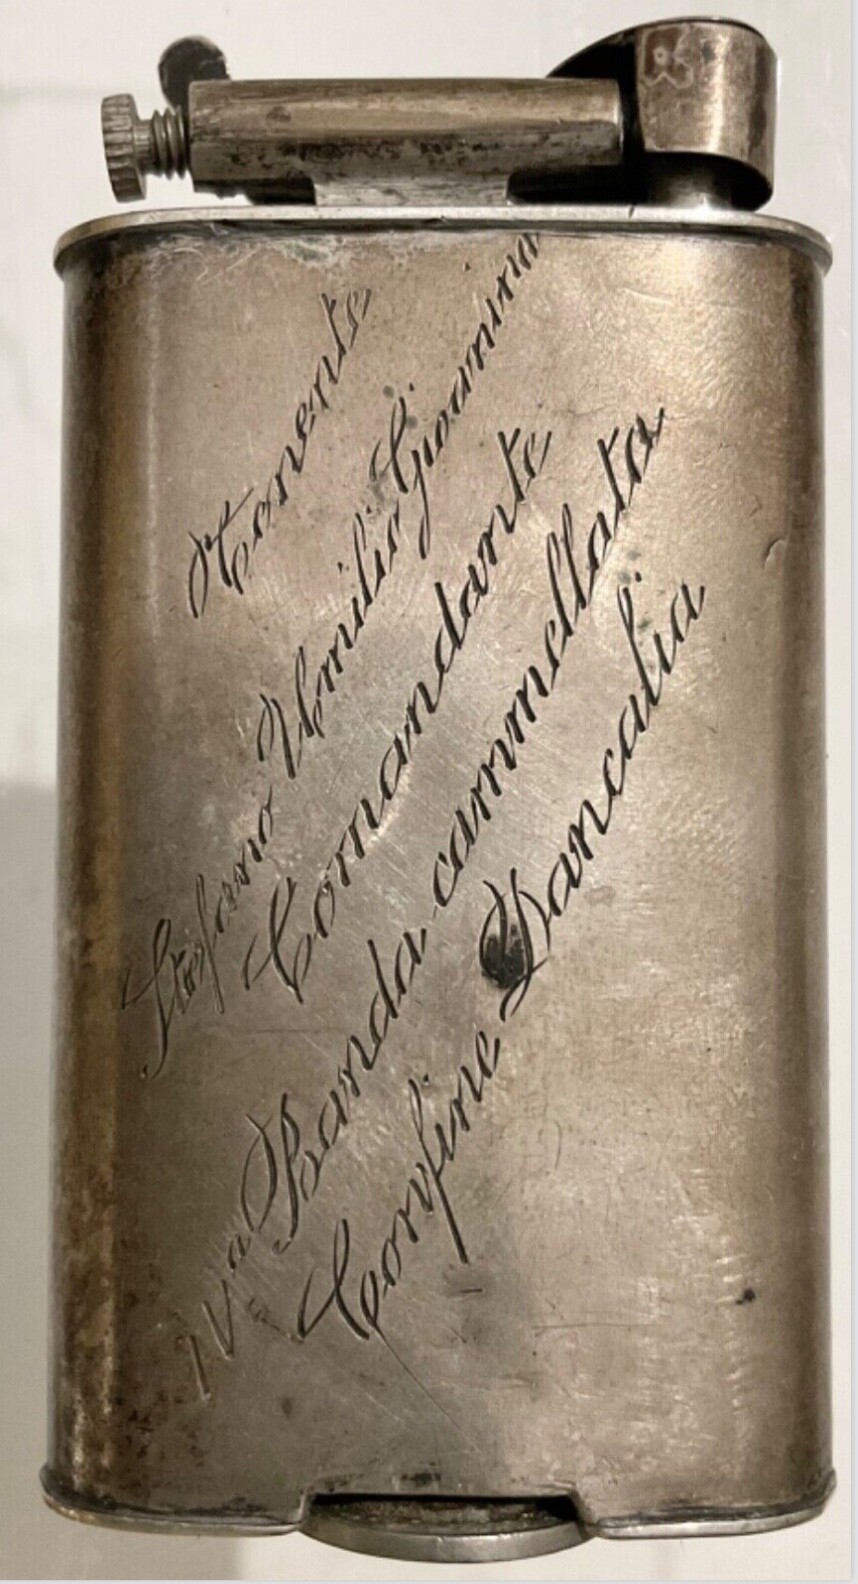 Tenente
Stefano Umilio
Comandante
IVa Banda cammellata
Confine Dancalia